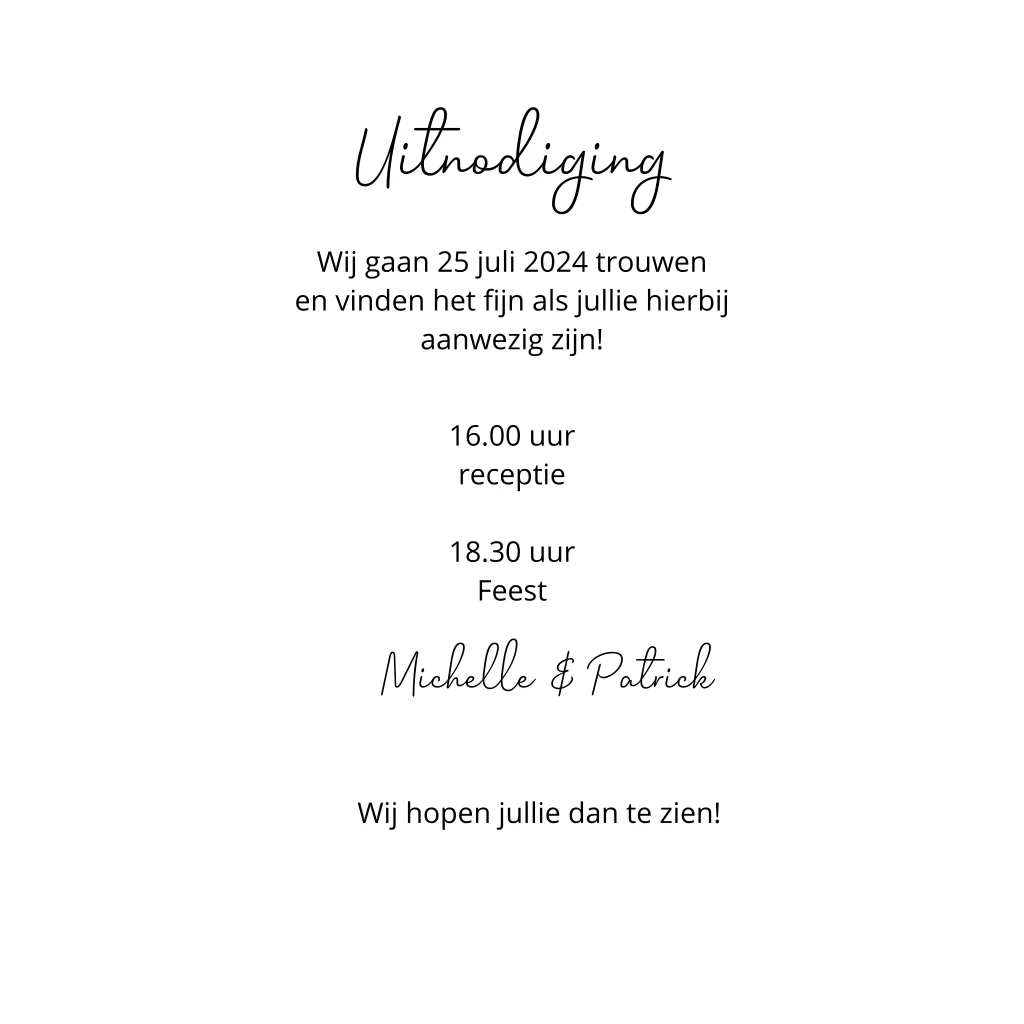 Uitnodiging
Wij gaan 25 juli 2024 trouwen
en vinden het fijn als jullie hierbij
aanwezig zijn!
16.00 uur
receptie
18.30 uur
Feest
Michelle & Patrick
Wij hopen jullie dan te zien!